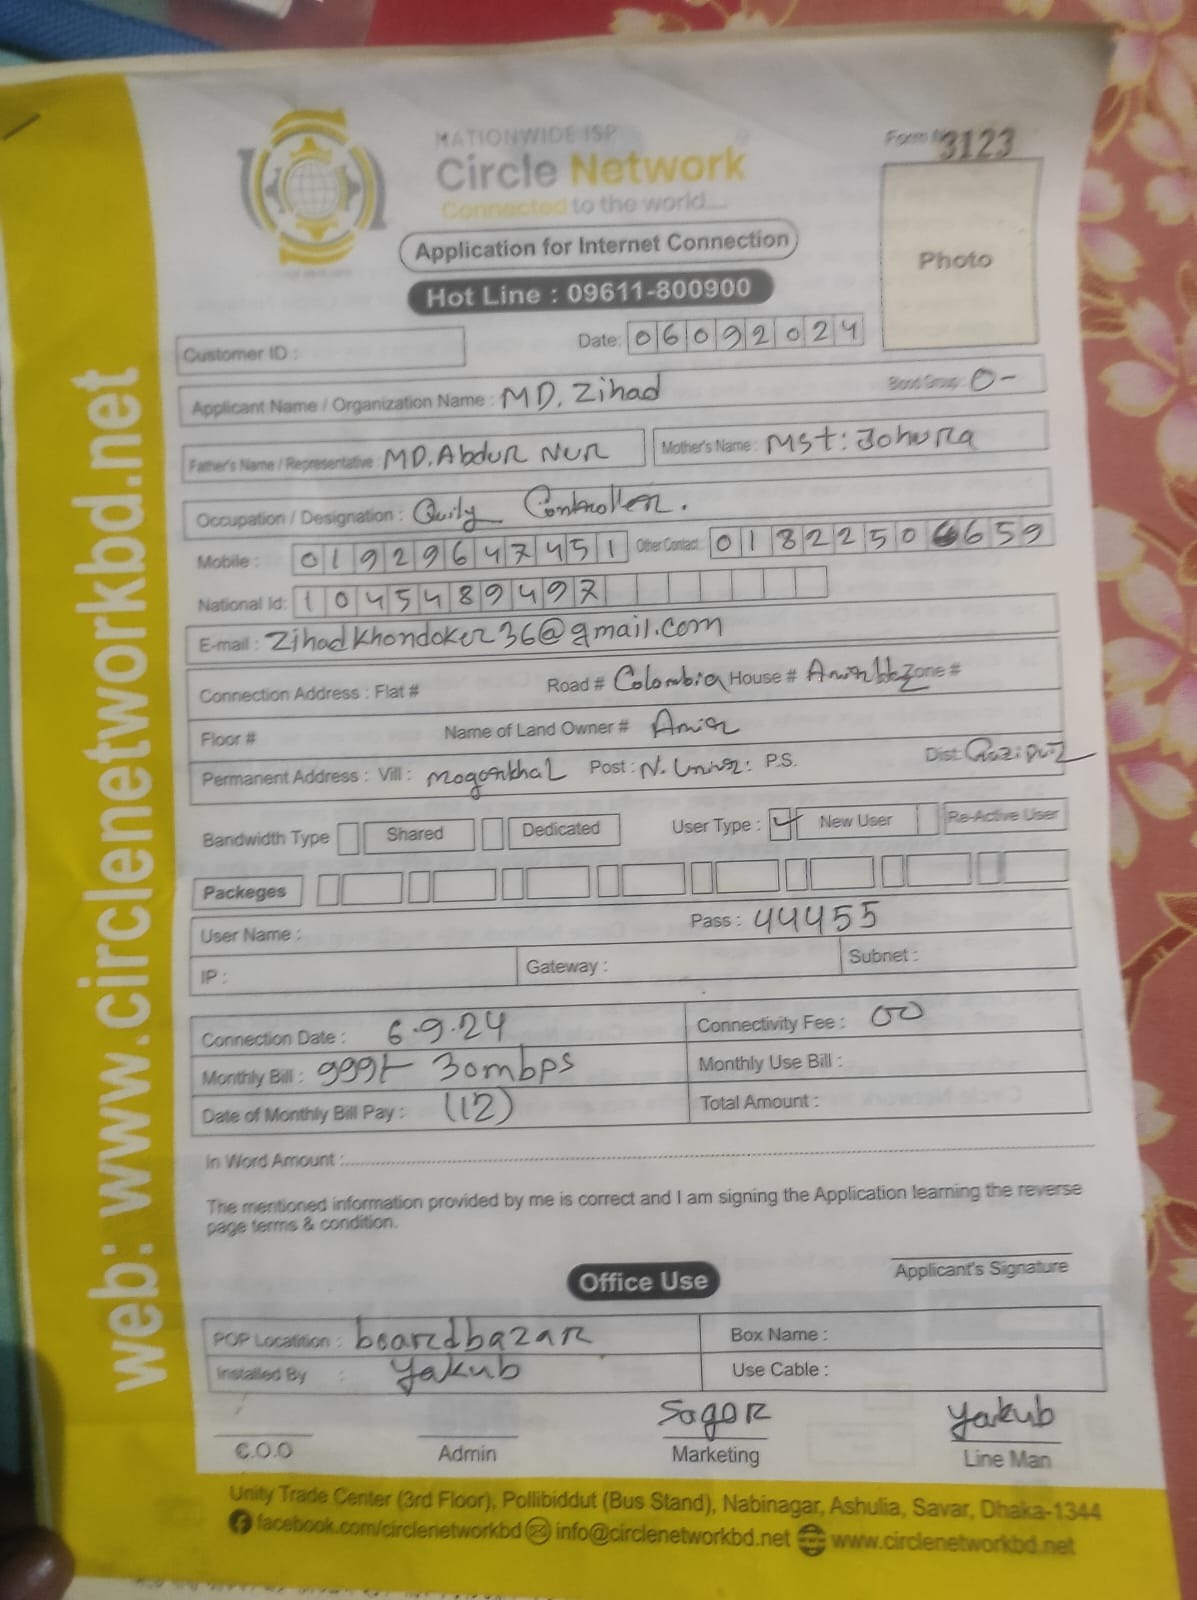 NATIONWIDE ISP
Circle Network
Connected to the world....
Form No 3123
Application for Internet Connection
Photo
Hot Line : 09611-800900
Customer ID :
Date: 06092024
Applicant Name / Organization Name : MD. Zihad Blood Group: O-
Father's Name / Representative : MD. Abdur Nur Mother's Name : Mst: Johura
Occupation / Designation : Quily Controller.
Mobile : 01929647451 Other Contact: 01822506659
National Id: 1045489497
E-mail : Zihadkhondoker36@gmail.com
Connection Address : Flat # Road # Colombia House # Zone #
Floor # Name of Land Owner # Amir
Permanent Address : Vill : mogorkhal Post : N. Univer: P.S. Dist: Gazipur
Bandwidth Type Shared Dedicated User Type : New User Re-Active User
Packeges
User Name : Pass : 44455
IP : Gateway : Subnet :
Connection Date : 6.9.24 Connectivity Fee : 00
Monthly Bill : 999/- 30mbps Monthly Use Bill :
Date of Monthly Bill Pay : (12) Total Amount :
In Word Amount :
The mentioned information provided by me is correct and I am signing the Application learning the reverse
page terms & condition.
Applicant's Signature
Office Use
POP Locatition : boardbazar Box Name :
Installed By : Yakub Use Cable :
Sagor Yakub
C.O.O Admin Marketing Line Man
Unity Trade Center (3rd Floor), Pollibiddut (Bus Stand), Nabinagar, Ashulia, Savar, Dhaka-1344
facebook.com/circlenetworkbd info@circlenetworkbd.net www.circlenetworkbd.net
web: www.circlenetworkbd.net